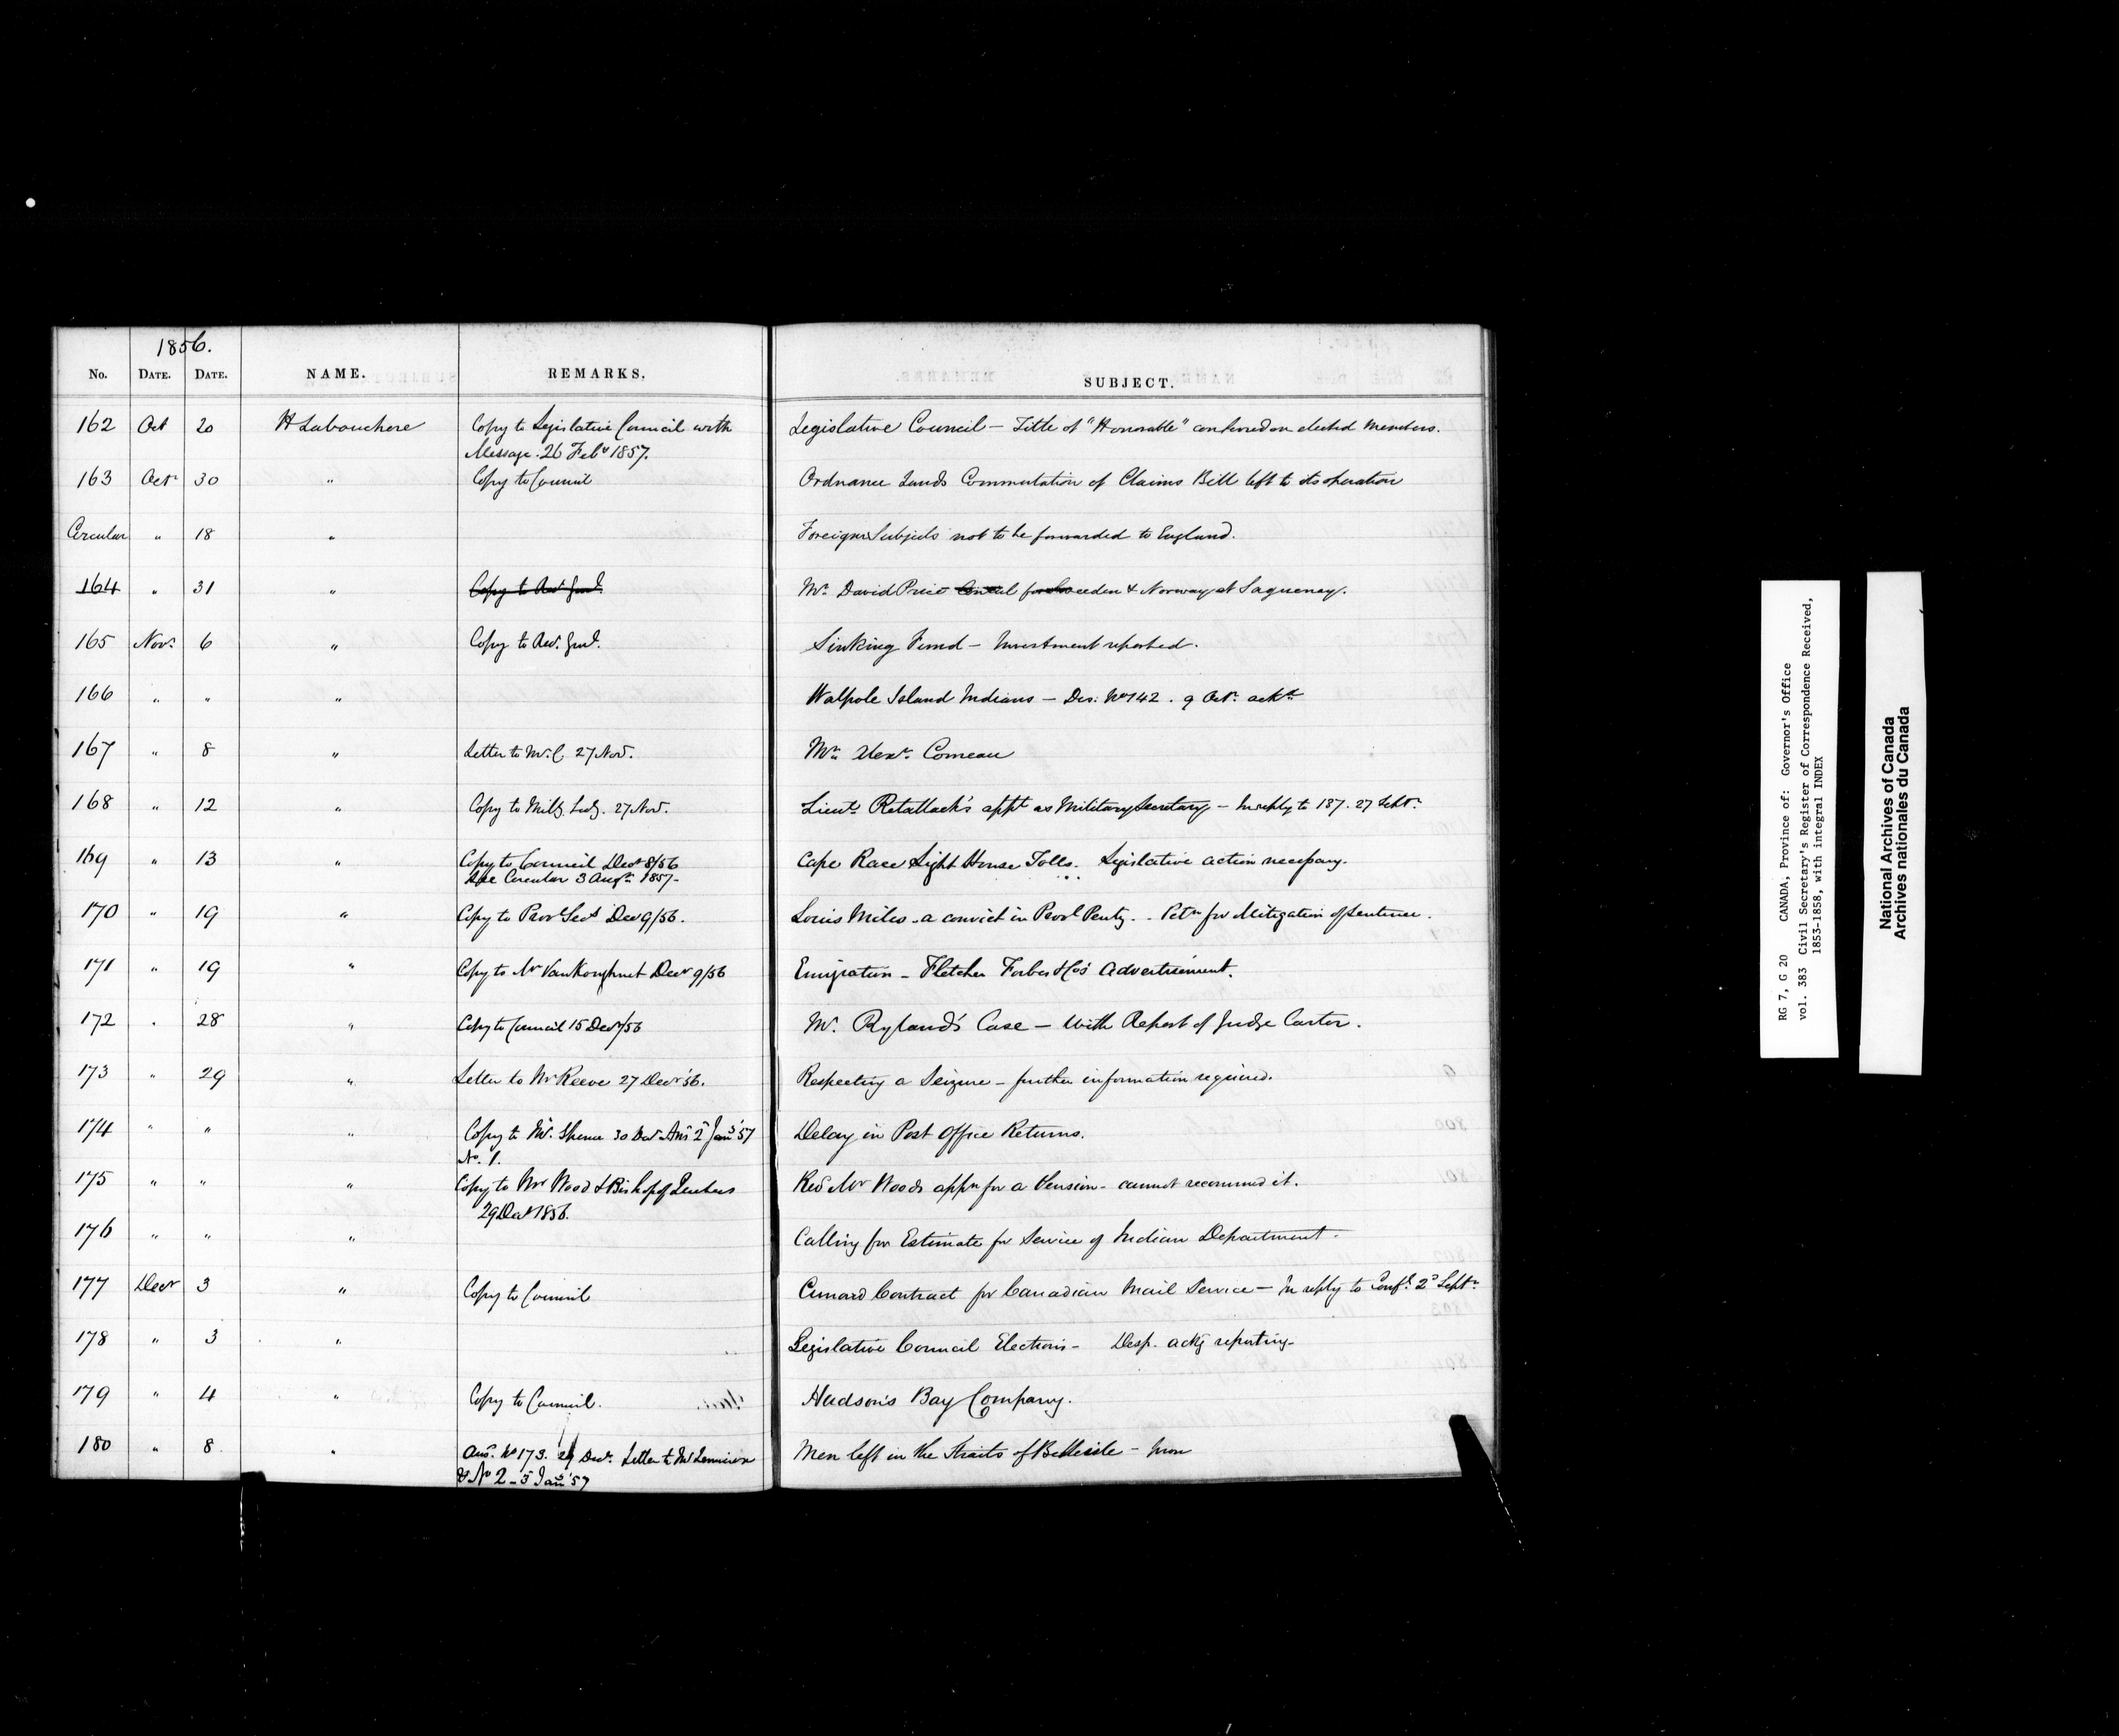 1856.
No. DATE. DATE. NAME. REMARKS. SUBJECT.
162 Oct 20 H Labouchere Copy to Legislative Council with Legislative Council – Title of "Honorable" conferred on elected Members.
Message. 26 Feby 1857.
163 Octr 30 " Copy to Council Ordnance Lands Commutation of Claims Bill left to its operation
Circular " 18 " Foreign Subjects not to be forwarded to England.
164 " 31 " Copy to Aud. Genl. Mr. David Price Consul for Sweden & Norway at Saguenay.
165 Novr. 6 " Copy to Aud. Genl. Sinking Fund – Investment reported.
166 " " " Walpole Island Indians – Des. No 142. 9 Octr. ackd.
167 " 8 " Letter to Mr. C. 27 Nov. Mr. Alexr. Comeau
168 " 12 " Copy to Mily. Secy. 27 Nov. Lieut. Retallack's appt as Military Secretary – In reply to 137. 27 Septr.
169 " 13 " Copy to Council Decr 8/56 Cape Race Light House Tolls. Legislative action necessary.
See Circular 3 Augt. 1857–
170 " 19 " Copy to Provl Secy Decr 9/56. Louis Miles – a convict in Provl Penty. – Petn for Mitigation of Sentence.
171 " 19 " Copy to Mr VanKoughnet Decr 9/56 Emigration – Fletcher Forbes & Co's Advertisement.
172 . 28 " Copy to Council 15 Decr/56 Mr. Ryland's Case – With Report of Judge Carter.
173 " 29 " Letter to Mr Reeve 27 Decr '56. Respecting a Seizure – further information required.
174 " " " Copy to Mr. Spence 30 Decr. Ansd 2d Jany '57 Delay in Post Office Returns.
No. 1.
175 " " " Copy to Mr Wood & Bishop of Quebec Revd Mr Woods appn for a Pension – cannot recommend it.
29 Decr 1856.
176 " " " Calling for Estimate for Service of Indian Department.
177 Decr 3 " Copy to Council Cunard Contract for Canadian Mail Service – In reply to Confl. 2d Septr.
178 " 3 " Legislative Council Elections – Desp. ackg reporting –
179 " 4 " Copy to Council. Hudson's Bay Company.
180 " 8 " Ansd. No 173. 29 Decr. Letter to Mr Men left in the Straits of Belleisle –
& No 2 – 5 Jany '57
RG 7, G 20 CANADA, Province of: Governor's Office
vol. 383 Civil Secretary's Register of Correspondence Received,
1853-1858, with integral INDEX
National Archives of Canada
Archives nationales du Canada